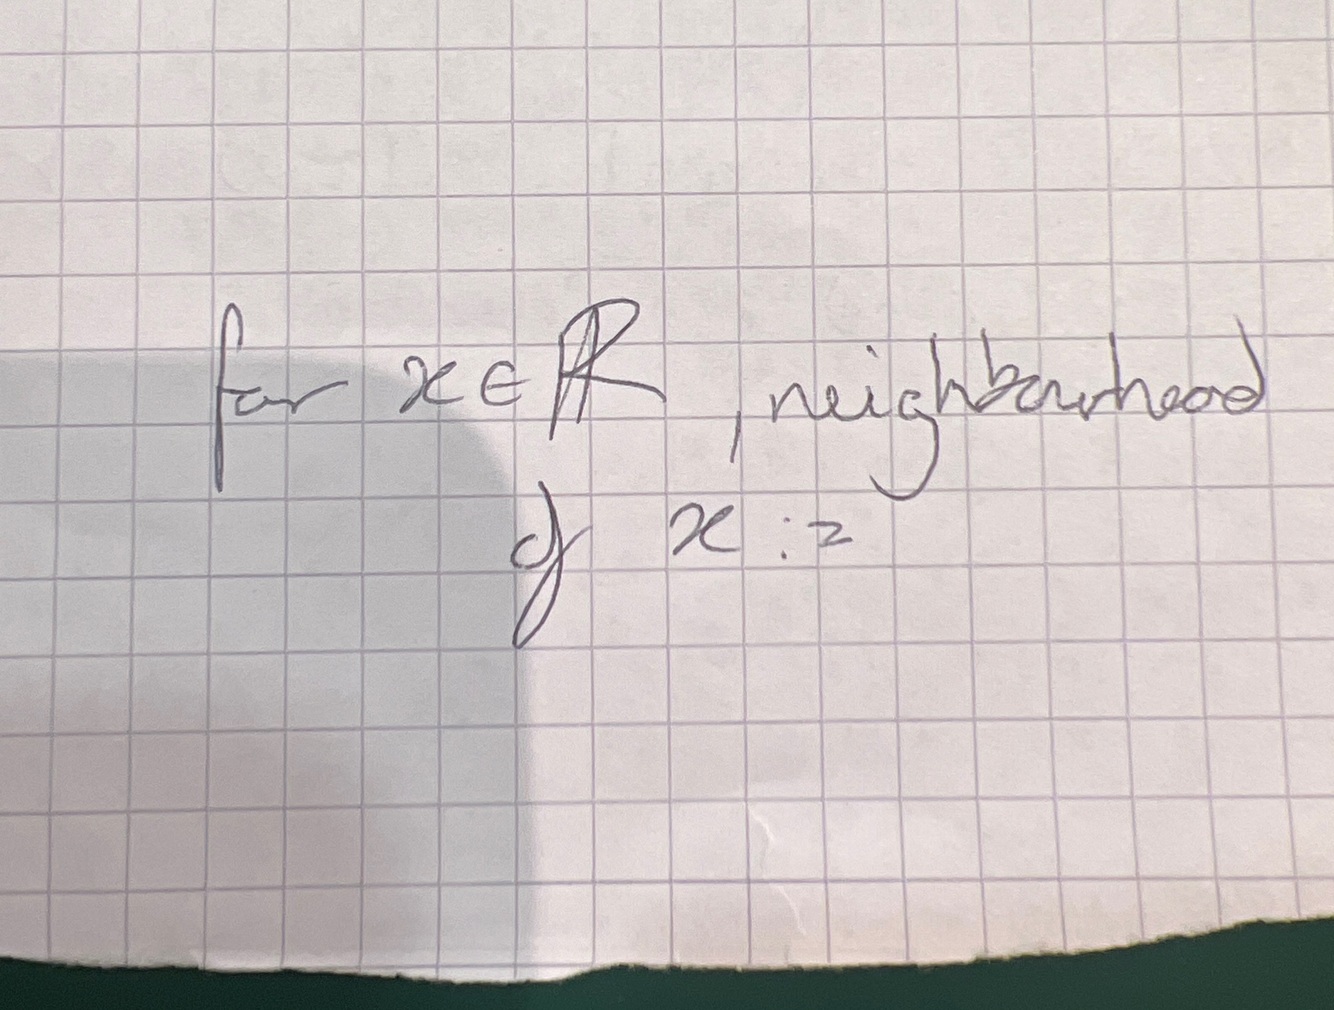 for x ∈ ℝ, neighbourhood
of x :=